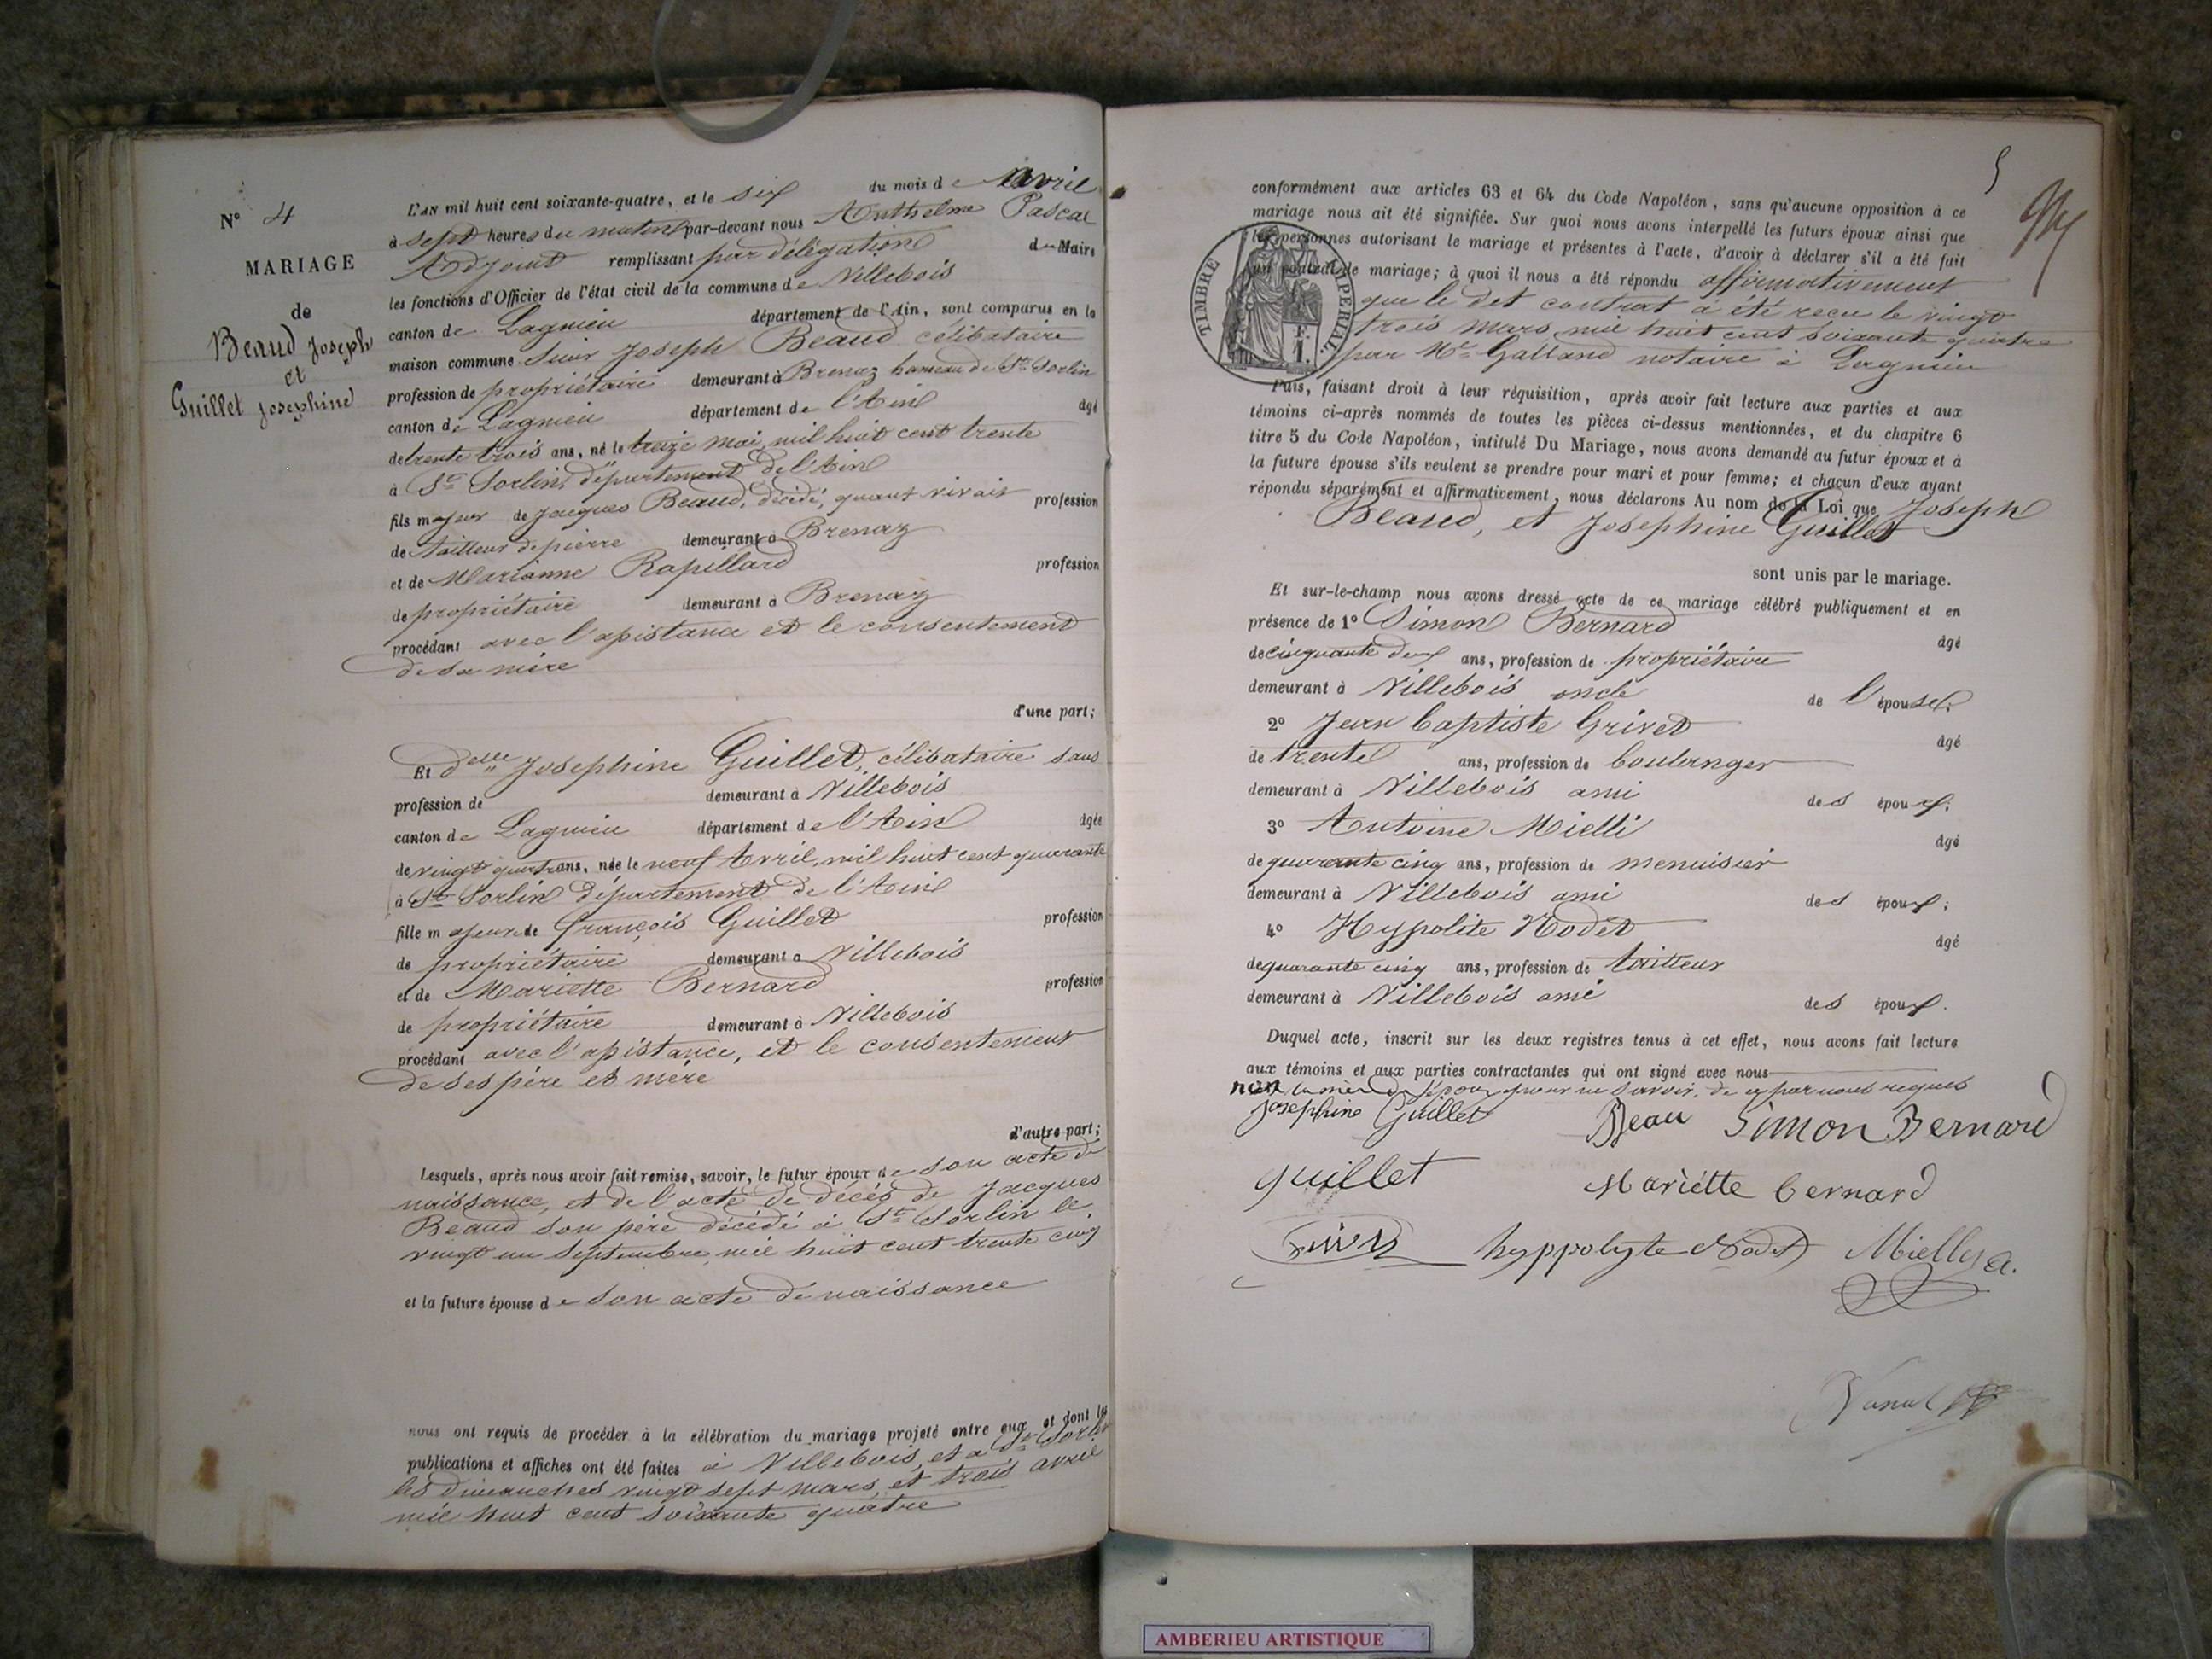 N° 4
MARIAGE
de
Beaud Joseph
et
Guillet Josephine
L'AN mil huit cent soixante-quatre, et le six du mois de Avril
à sept heures du matin par-devant nous Anthelme Pascal
Adjoint remplissant par délégation du Maire
les fonctions d'Officier de l'état civil de la commune de Villebois
canton de Lagnieu département de l'Ain, sont comparus en la
maison commune Sieur Joseph Beaud célibataire
profession de propriétaire demeurant à Brenaz hameau de St Sorlin
canton de Lagnieu département de l'Ain âgé
de trente trois ans, né le treize mai, mil huit cent trente
à St Sorlin, département de l'Ain
fils majeur de Jacques Beaud, décédé, quant vivait profession
de tailleur de pierre demeurant à Brenaz
et de Marianne Rapillard profession
de propriétaire demeurant à Brenaz
procédant avec l'assistance et le consentement
de sa mère
d'une part;
Et delle Josephine Guillet, célibataire sans
profession de demeurant à Villebois
canton de Lagnieu département de l'Ain âgée
de vingt quatre ans, née le neuf Avril, mil huit cent quarante
à St Sorlin département de l'Ain
fille majeure de François Guillet profession
de propriétaire demeurant à Villebois
et de Mariette Bernard profession
de propriétaire demeurant à Villebois
procédant avec l'assistance, et le consentement
de ses père et mère
d'autre part;
Lesquels, après nous avoir fait remise, savoir, le futur époux de son acte de
naissance, et de l'acte de décès de Jacques
Beaud son père décédé à St Sorlin le
vingt un septembre, mil huit cent trente cinq
et la future épouse de son acte de naissance
nous ont requis de procéder à la célébration du mariage projeté entre eux et dont les
publications et affiches ont été faites à Villebois, et à St Sorlin
les dimanches vingt sept mars, et trois avril
mil huit cent soixante quatre
5
conformément aux articles 63 et 64 du Code Napoléon, sans qu'aucune opposition à ce
mariage nous ait été signifiée. Sur quoi nous avons interpellé les futurs époux ainsi que
les personnes autorisant le mariage et présentes à l'acte, d'avoir à déclarer s'il a été fait
un contrat de mariage; à quoi il nous a été répondu affirmativement
que le dit contrat à été reçu le vingt
trois mars mil huit cent soixante quatre
par Me Galland notaire à Lagnieu
TIMBRE IMPERIAL.
F. 1.
Puis, faisant droit à leur réquisition, après avoir fait lecture aux parties et aux
témoins ci-après nommés de toutes les pièces ci-dessus mentionnées, et du chapitre 6
titre 5 du Code Napoléon, intitulé Du Mariage, nous avons demandé au futur époux et à
la future épouse s'ils veulent se prendre pour mari et pour femme; et chacun d'eux ayant
répondu séparément et affirmativement, nous déclarons Au nom de la Loi que Joseph
Beaud, et Josephine Guillet
sont unis par le mariage.
Et sur-le-champ nous avons dressé acte de ce mariage célébré publiquement et en
présence de 1° Simon Bernard âgé
de cinquante deux ans, profession de propriétaire
demeurant à Villebois oncle de l'épouse;
2° Jean Baptiste Grivet âgé
de trente ans, profession de boulanger
demeurant à Villebois ami des époux;
3° Antoine Mielli âgé
de quarante cinq ans, profession de menuisier
demeurant à Villebois ami des époux;
4° Hypolite Nodet âgé
de quarante cinq ans, profession de tailleur
demeurant à Villebois ami des époux.
Duquel acte, inscrit sur les deux registres tenus à cet effet, nous avons fait lecture
aux témoins et aux parties contractantes qui ont signé avec nous
non la mère de l'époux pour ne savoir, de ce par nous requis
Josephine Guillet Beau Simon Bernard
guillet Mariétte bernard
hyppolyte Nodet Mielly a.
AMBERIEU ARTISTIQUE